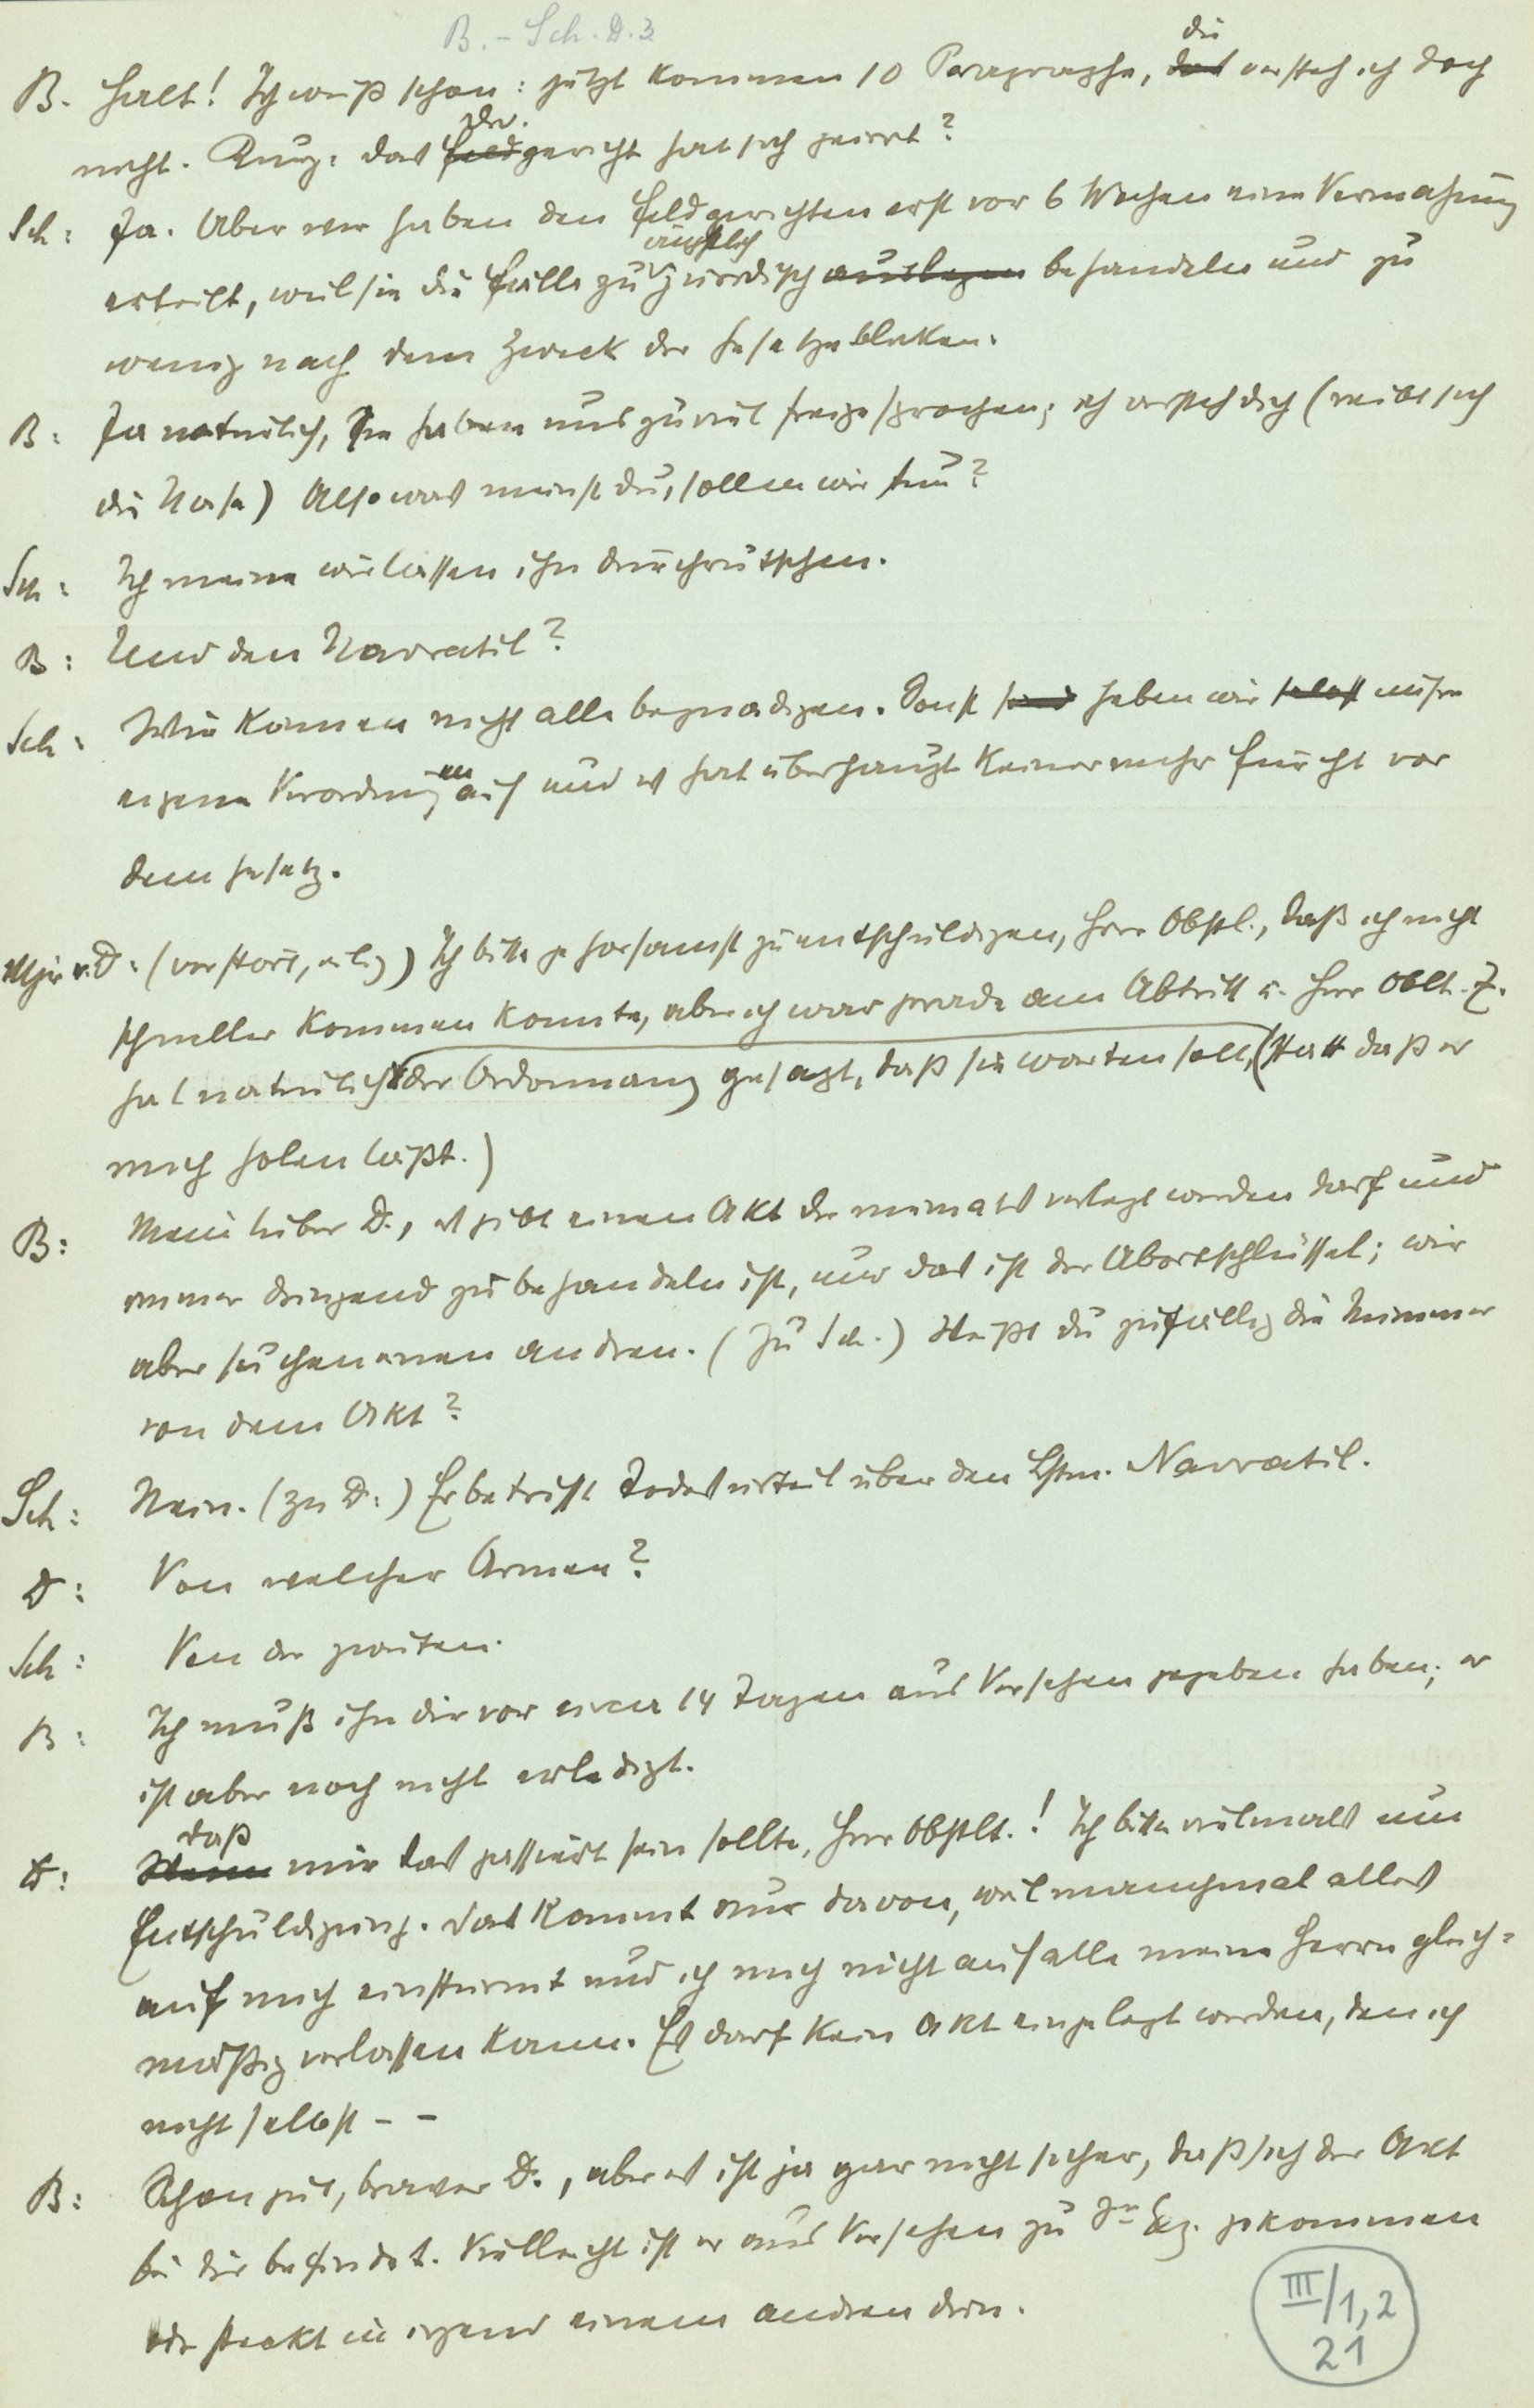 B. - Sch. D. 3
B. Halt! Ich weiß schon: jetzt kommen 10 Paragraphe, die versteh ich doch
nicht. Kurz: das Div.gericht hat sich geirrt?
Sch: Ja. Aber wir haben den Feldgerichten erst vor 6 Wochen eine Vermahnung
erteilt, weil sie die Fälle zu ängstlich juridisch behandeln und zu
wenig nach dem Zweck der Gesetze blicken.
B: Ja natürlich, sie haben uns zuviel freigesprochen; ich versteh dich (reibt sich
die Nase) Also was meinst du, sollen wir tun?
Sch: Ich meine wir lassen ihn durchrutschen.
B: Und den Navratil?
Sch: Wir können nicht alle begnadigen. Sonst heben wir unsre
eigenen Verordnungen auf und es hat überhaupt keiner mehr Furcht vor
dem Gesetz.
Mjr v. D: (verstört, eilig) Ich bitte gehorsamst zu entschuldigen, Herr Obstl., daß ich nicht
schneller kommen konnte, aber ich war grade am Abtritt u. Herr Oblt. Z.
hat natürlich der Ordonnanz gesagt, daß sie warten soll, (statt daß er
mich holen läßt.)
B: Mein lieber D., es gibt einen Akt der niemals verlegt werden darf und
immer dringend zu behandeln ist, und das ist der Abortschlüssel; wir
aber suchen einen andren. (Zu Sch.) Weißt du zufällig die Nummer
von dem Akt?
Sch: Nein. (zu D:) Er betrifft Todesurteil über den Lstm. Navratil.
D: Von welcher Armee?
Sch: Von der zweiten.
B: Ich muß ihn dir vor circa 14 Tagen aus Versehen gegeben haben; er
ist aber noch nicht erledigt.
D: Daß mir das passiert sein sollte, Herr Obstlt.! Ich bitte vielmals um
Entschuldigung. Das kommt nur davon, weil manchmal alles
auf mich einstürmt und ich mich nicht auf alle meine Herrn gleich=
mäßig verlassen kann. Es darf kein Akt eingelegt werden, den ich
nicht selbst - -
B: Schon gut, braver D., aber es ist ja gar nicht sicher, daß sich der Akt
bei dir befindet. Vielleicht ist er aus Versehen zu Sr Exz. gekommen
oder steckt in irgend einem andren drin.
III/1,2
21